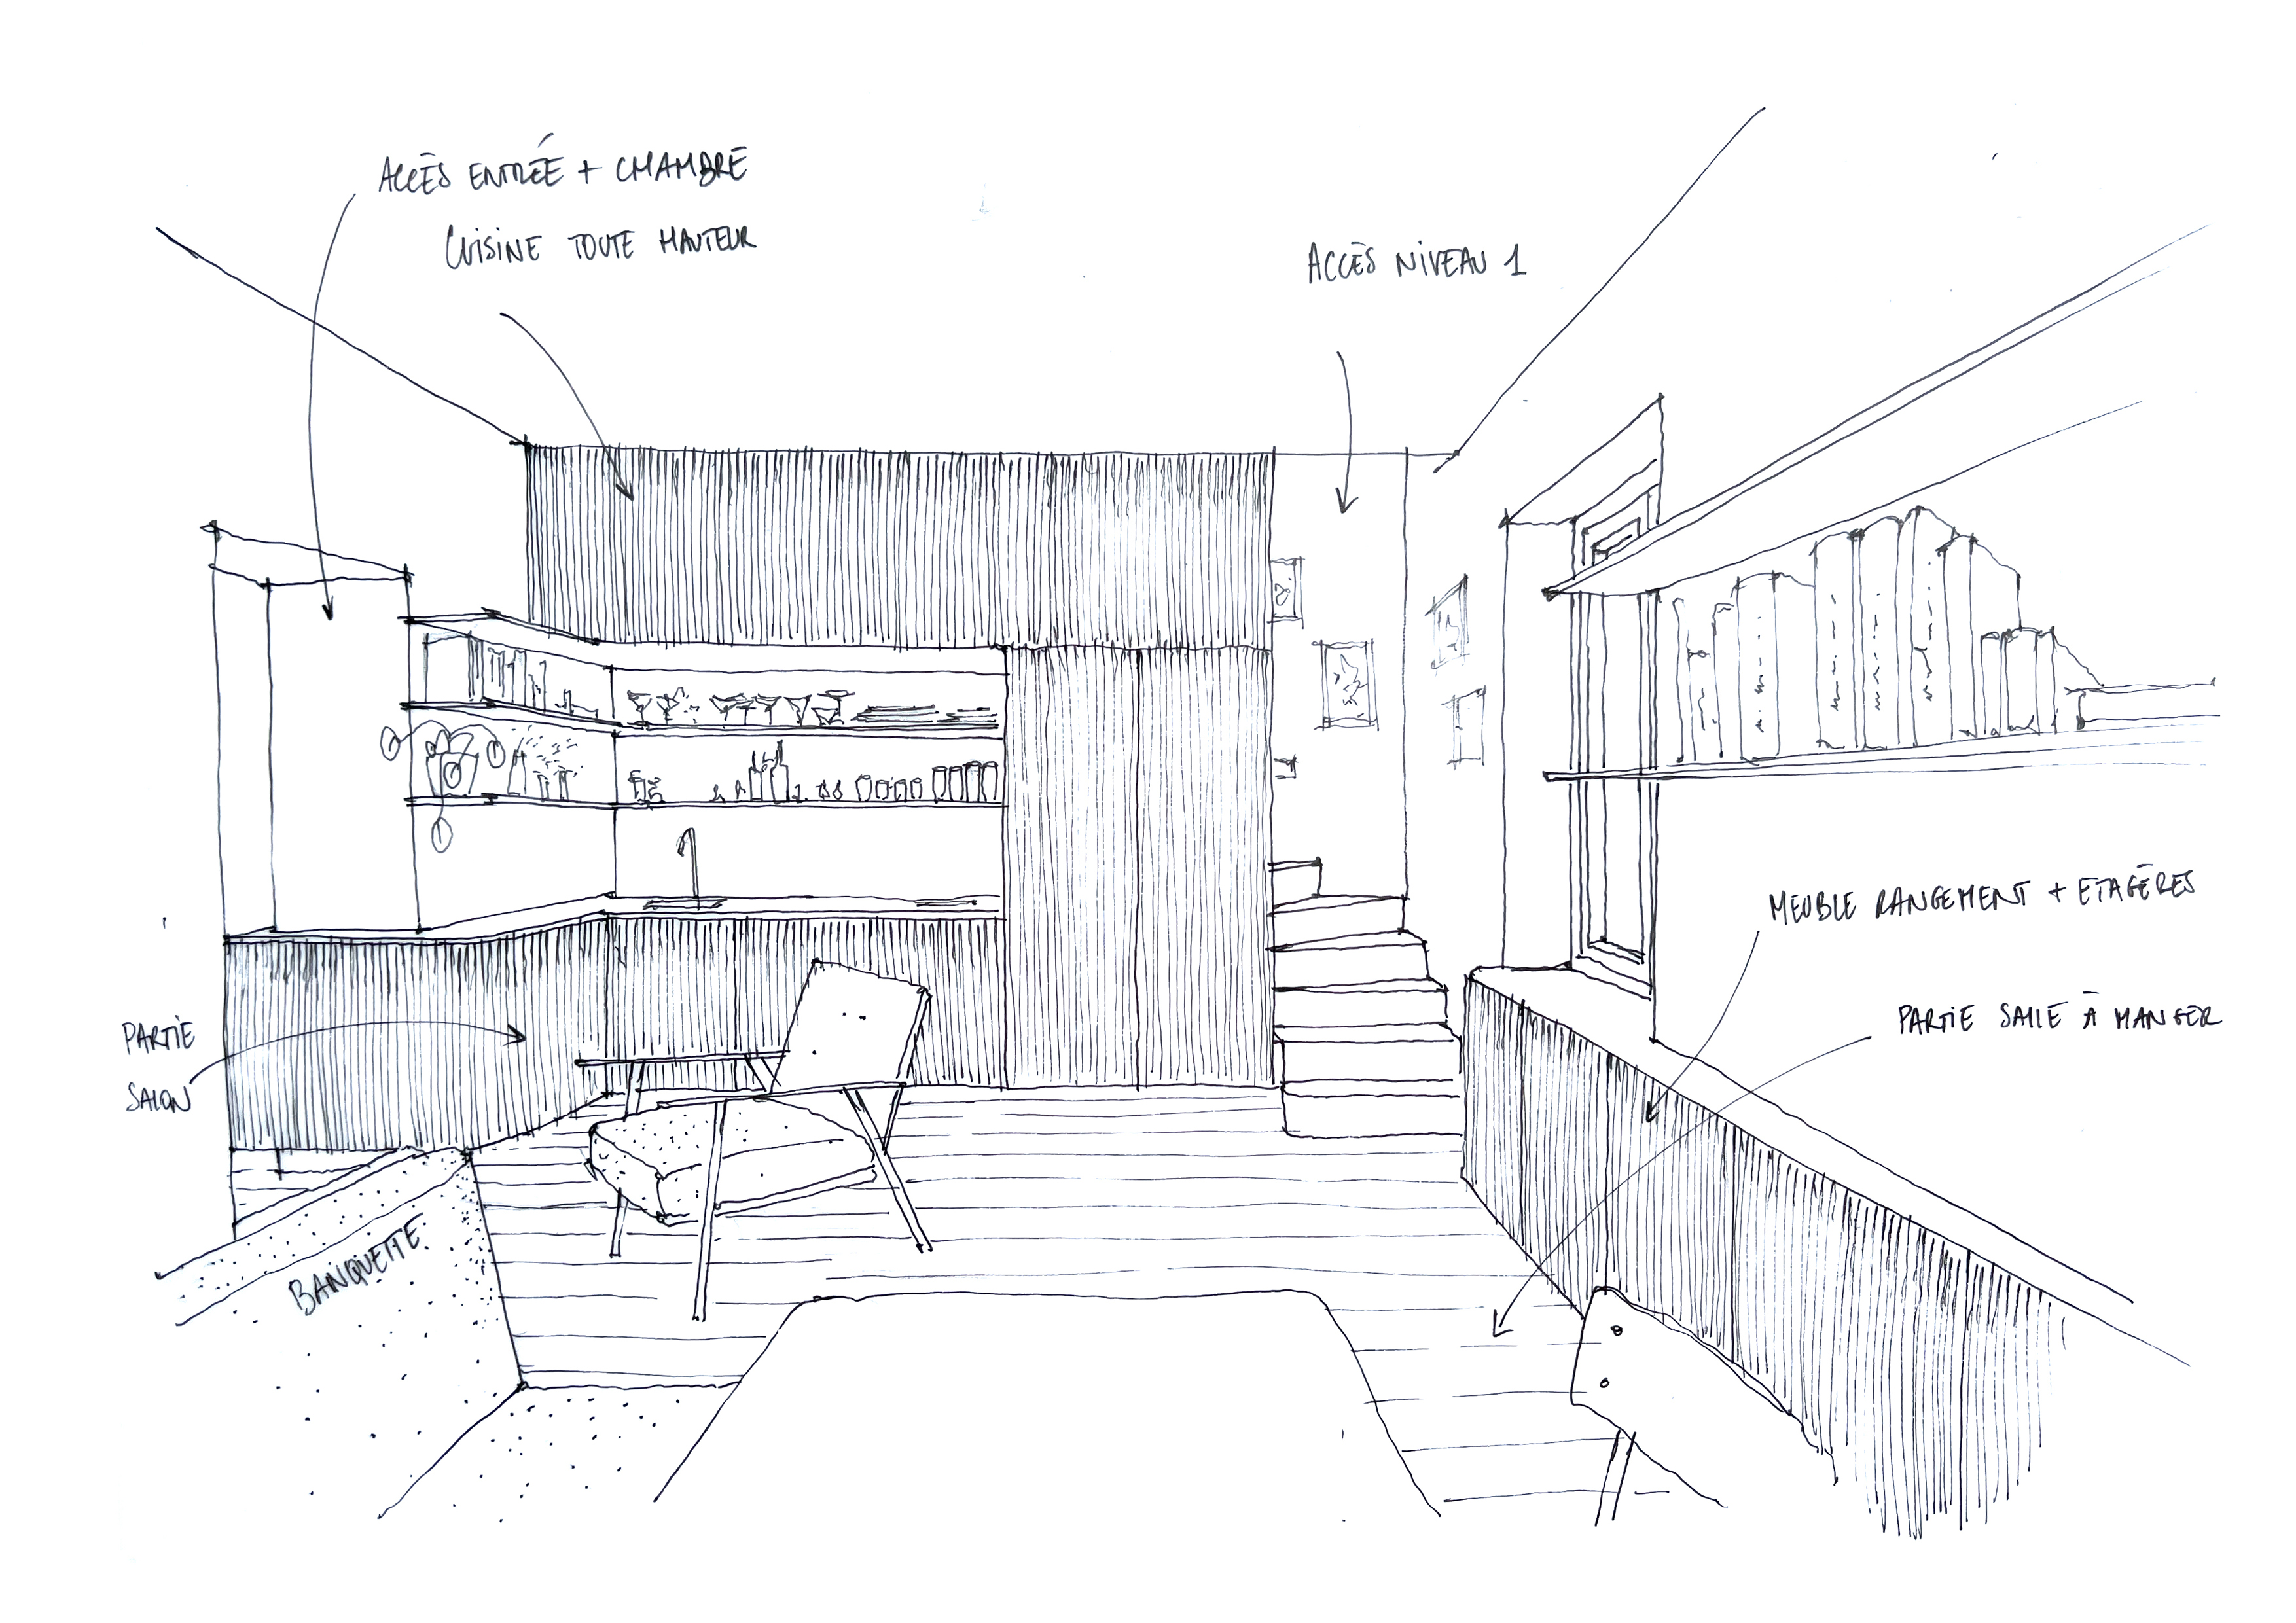 ACCÈS ENTRÉE + CHAMBRE
CUISINE TOUTE HAUTEUR
ACCÈS NIVEAU 1
MEUBLE RANGEMENT + ETAGÈRES
PARTIE SALLE À MANGER
PARTIE
SALON
BANQUETTE